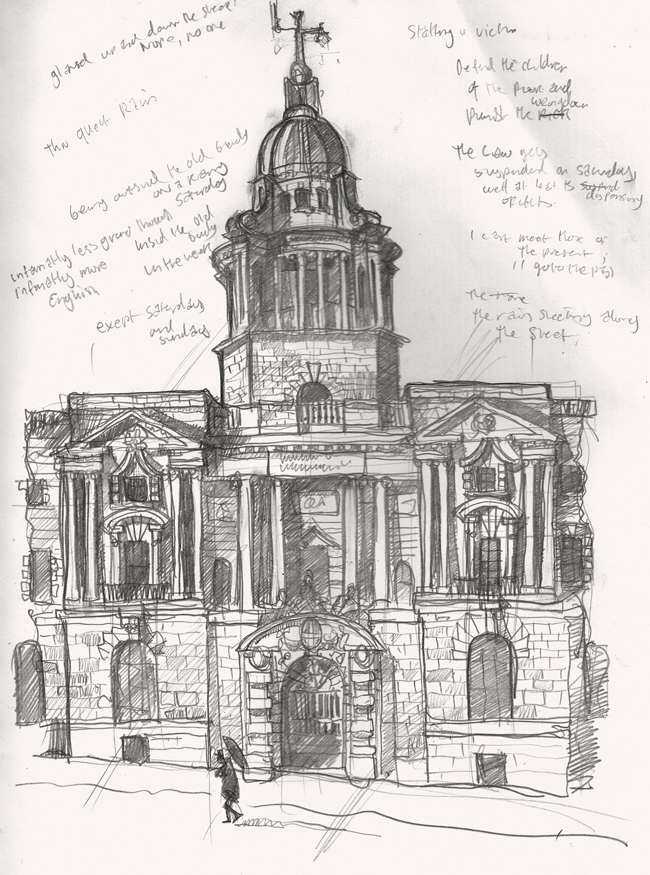 glanced up and down the street
no one
this quiet rain
being outside the old bailey
on a rainy
Saturday
infinitely less grand than
infinitely more
English
inside the old
bailey
in the week
exept Saturdays
and
sundays
Stalking a victim
Defend the children
of the poor and
punish the wrongdoer
The Law gets
suspended on Saturday,
well at least its
dispensing
I cant meet those of
the present,
The
the rain sleeting along
the street,